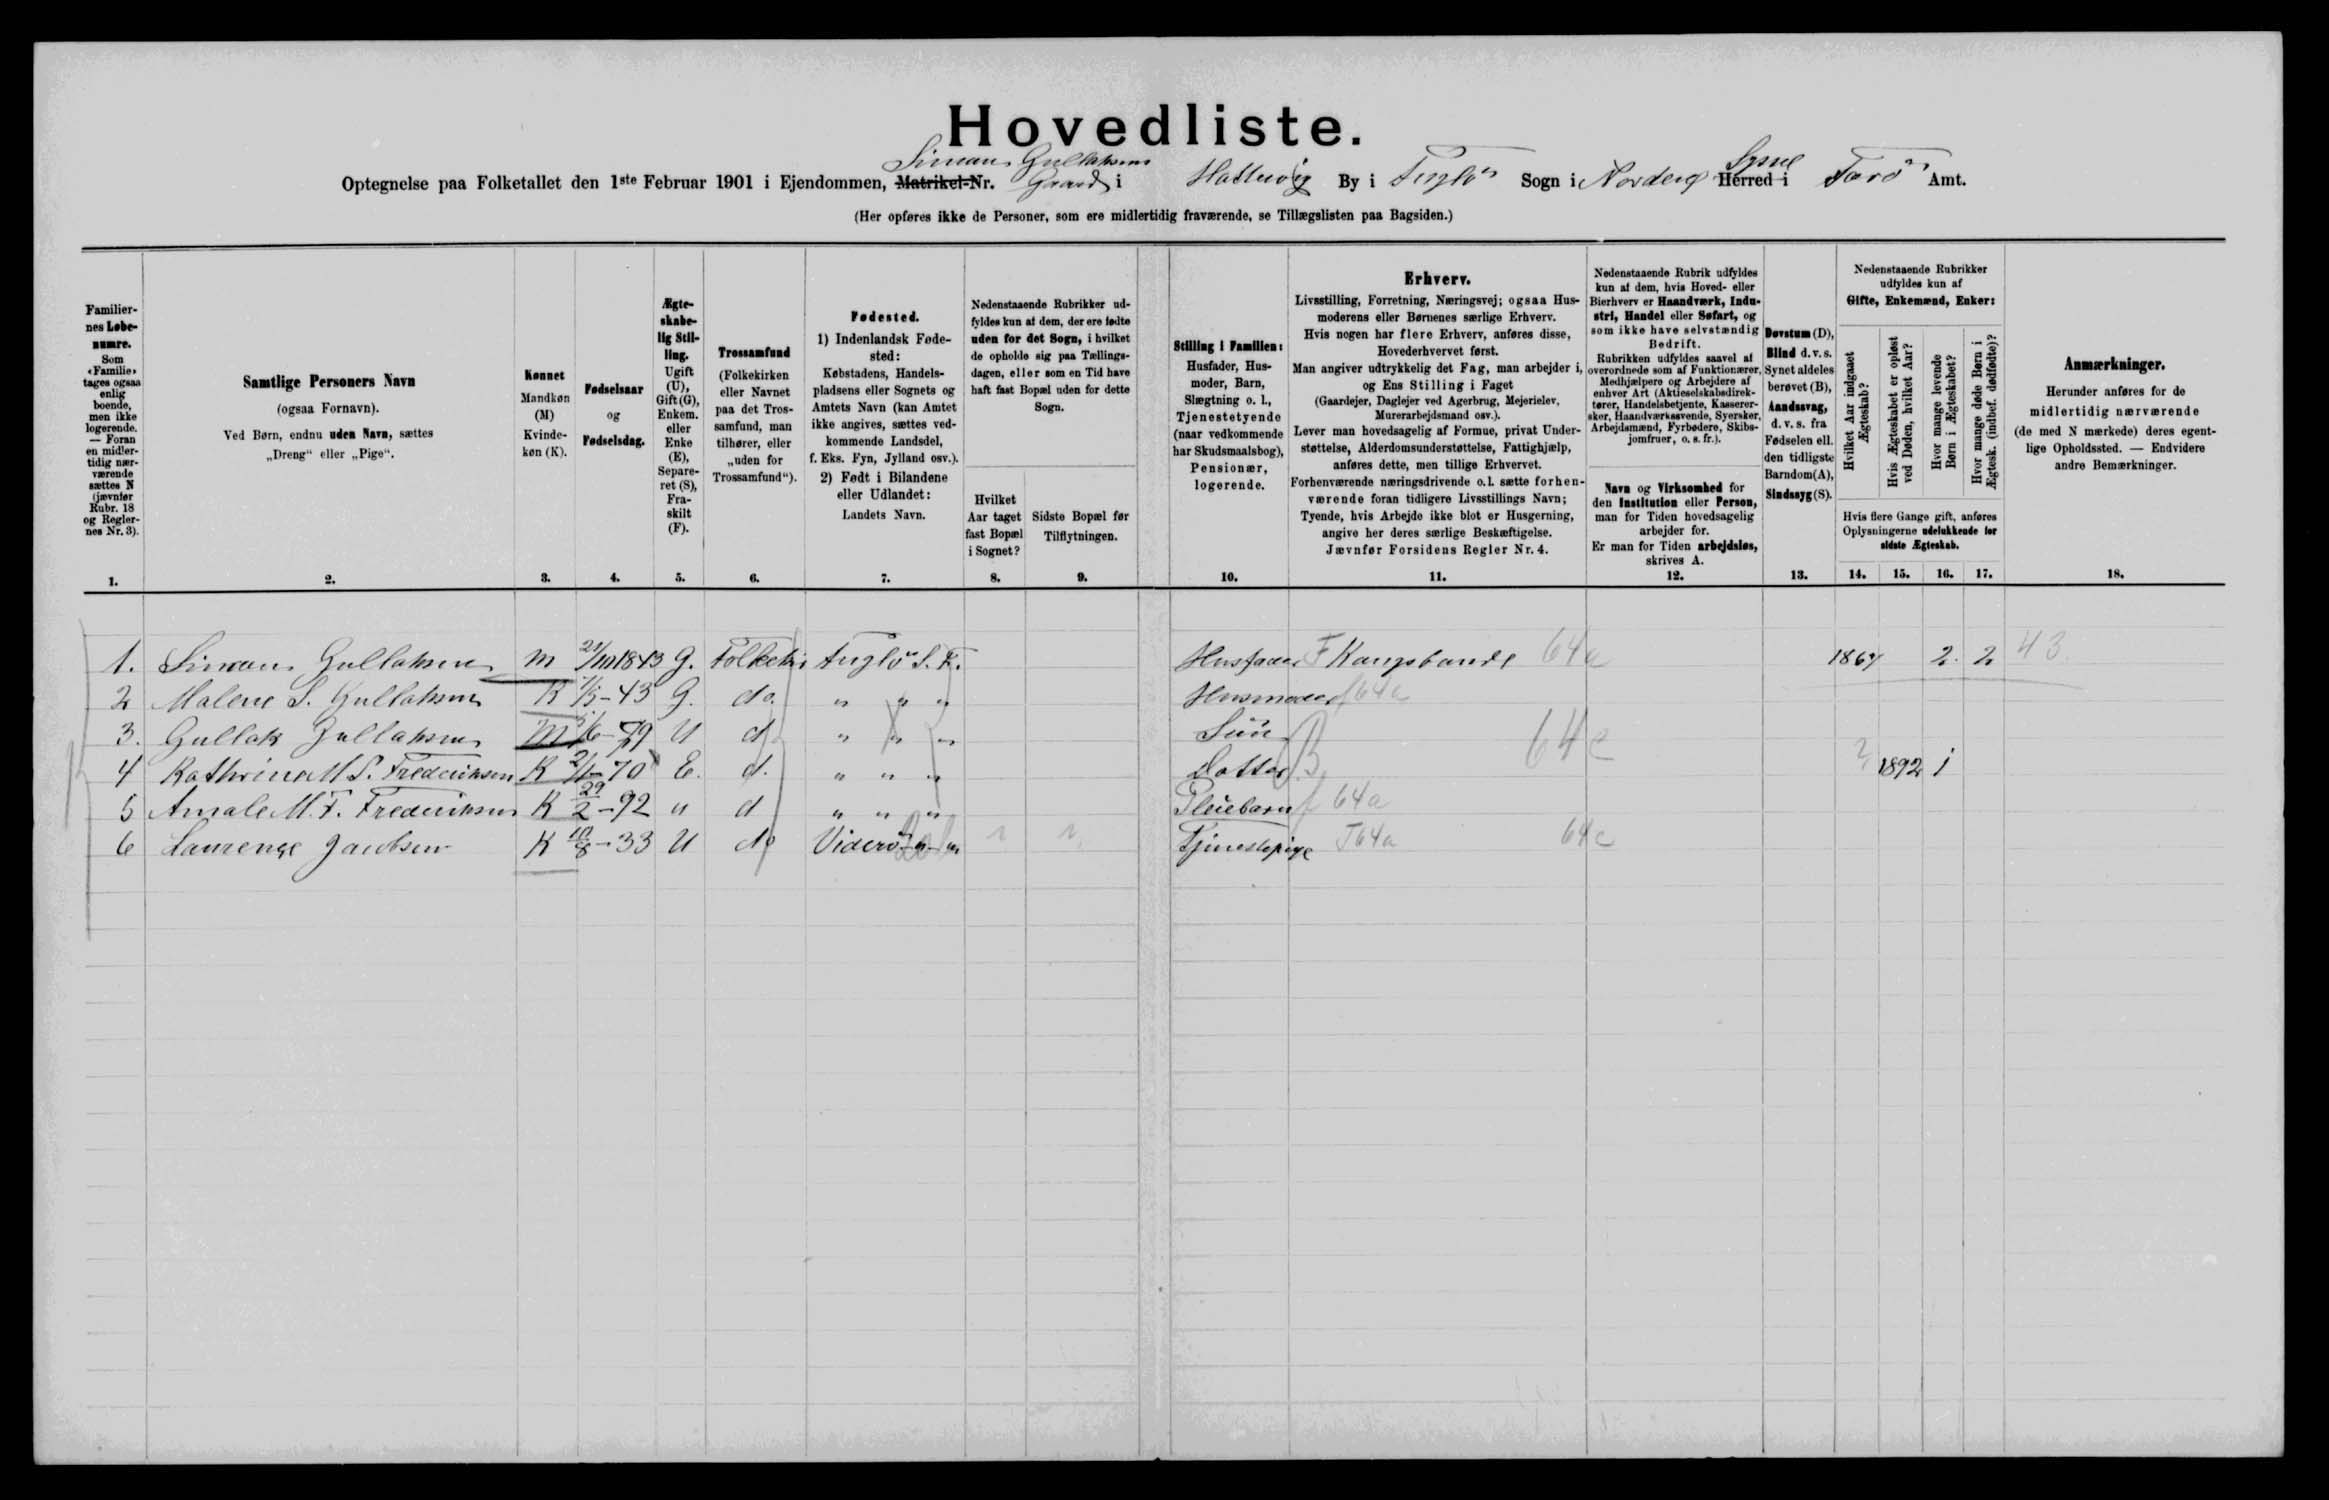 Hovedliste.
Simon Gullaksens
Optegnelse paa Folketallet den 1ste Februar 1901 i Ejendommen, Matrikel-Nr. Gaard i Hattervig By i Fuglö Sogn i Norderø Herred i Færö Amt.
Syssel
(Her opføres ikke de Personer, som ere midlertidig fraværende, se Tillægslisten paa Bagsiden.)
Familier-
nes Løbe-
numre.
Som
«Familie»
tages ogsaa
enlig
boende,
men ikke
logerende.
— Foran
en midler-
tidig nær-
værende
sættes N
(jævnfør
Rubr. 18
og Regler-
nes Nr. 3).
1.
Samtlige Personers Navn
(ogsaa Fornavn).
Ved Børn, endnu uden Navn, sættes
„Dreng“ eller „Pige“.
2.
Kønnet
Mandkøn
(M)
Kvinde-
køn (K).
3.
Fødselsaar
og
Fødselsdag.
4.
Ægte-
skabe-
lig Stil-
ling.
Ugift
(U),
Gift (G),
Enkem.
eller
Enke
(E),
Separe-
ret (S),
Fra-
skilt
(F).
5.
Trossamfund
(Folkekirken
eller Navnet
paa det Tros-
samfund, man
tilhører, eller
„uden for
Trossamfund“).
6.
Fødested.
1) Indenlandsk Føde-
sted:
Købstadens, Handels-
pladsens eller Sognets og
Amtets Navn (kan Amtet
ikke angives, sættes ved-
kommende Landsdel,
f. Eks. Fyn, Jylland osv.).
2) Født i Bilandene
eller Udlandet:
Landets Navn.
7.
Nedenstaaende Rubrikker ud-
fyldes kun af dem, der ere fødte
uden for det Sogn, i hvilket
de opholde sig paa Tællings-
dagen, eller som en Tid have
haft fast Bopæl uden for dette
Sogn.
Hvilket
Aar taget
fast Bopæl
i Sognet?
8.
Sidste Bopæl før
Tilflytningen.
9.
Stilling i Familien:
Husfader, Hus-
moder, Barn,
Slægtning o. l.,
Tjenestetyende
(naar vedkommende
har Skudsmaalsbog),
Pensionær,
logerende.
10.
Erhverv.
Livsstilling, Forretning, Næringsvej; ogsaa Hus-
moderens eller Børnenes særlige Erhverv.
Hvis nogen har flere Erhverv, anføres disse,
Hovederhvervet først.
Man angiver udtrykkelig det Fag, man arbejder i,
og Ens Stilling i Faget
(Gaardejer, Daglejer ved Agerbrug, Mejerielev,
Murerarbejdsmand osv.).
Lever man hovedsagelig af Formue, privat Under-
støttelse, Alderdomsunderstøttelse, Fattighjælp,
anføres dette, men tillige Erhvervet.
Forhenværende næringsdrivende o. l. sætte forhen-
værende foran tidligere Livsstillings Navn;
Tyende, hvis Arbejde ikke blot er Husgerning,
angive her deres særlige Beskæftigelse.
Jævnfør Forsidens Regler Nr. 4.
11.
Nedenstaaende Rubrik udfyldes
kun af dem, hvis Hoved- eller
Bierhverv er Haandværk, Indu-
stri, Handel eller Søfart, og
som ikke have selvstændig
Bedrift.
Rubrikken udfyldes saavel af
overordnede som af Funktionærer,
Medhjælpere og Arbejdere af
enhver Art (Aktieselskabsdirek-
tører, Handelsbetjente, Kasserer-
sker, Haandværkssvende, Syersker,
Arbejdsmænd, Fyrbødere, Skibs-
jomfruer, o. s. fr.).
Navn og Virksomhed for
den Institution eller Person,
man for Tiden hovedsagelig
arbejder for.
Er man for Tiden arbejdsløs,
skrives A.
12.
Døvstum (D),
Blind d. v. s.
Synet aldeles
berøvet (B),
Aandssvag,
d. v. s. fra
Fødselen ell.
den tidligste
Barndom (A),
Sindssyg (S).
13.
Nedenstaaende Rubrikker
udfyldes kun af
Gifte, Enkemænd, Enker:
Hvilket Aar indgaaet
Ægteskab?
Hvis Ægteskabet er opløst
ved Døden, hvilket Aar?
Hvor mange levende
Børn i Ægteskabet?
Hvor mange døde Børn i
Ægtesk. (indbef. dødfødte)?
Hvis flere Gange gift, anføres
Oplysningerne udelukkende for
sidste Ægteskab.
14. 15. 16. 17.
Anmærkninger.
Herunder anføres for de
midlertidig nærværende
(de med N mærkede) deres egent-
lige Opholdssted. — Endvidere
andre Bemærkninger.
18.
1. Simon Gullaksen M 1843 G. Folkekir Fuglö S. F. Husfader F Kongsbonde 64a 1867 2. 2 43
2 Malene S. Gullaksen K 1/5 - 43 G. do. " " " Husmoder f 64a
3. Gullak Gullaksen M 79 U d " " " Sön B 64c
4 Kathrina M S. Frederiksen K 70 E. d. " " " Dotter ? 1892 1
5 Amale M. F. Frederiksen K 29/2 - 92 u d " " " Pleiebarn f 64a
6 Laurense Jacobsen K 10/8 - 33 U do Viderö " " Tjenestepige T64a 64c